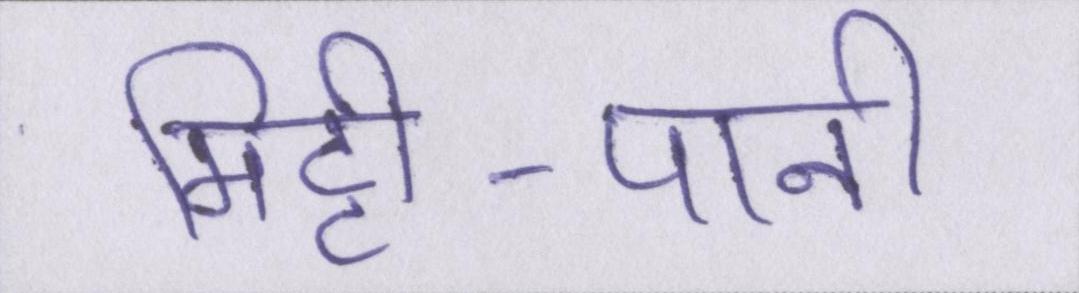 मिट्टी-पानी